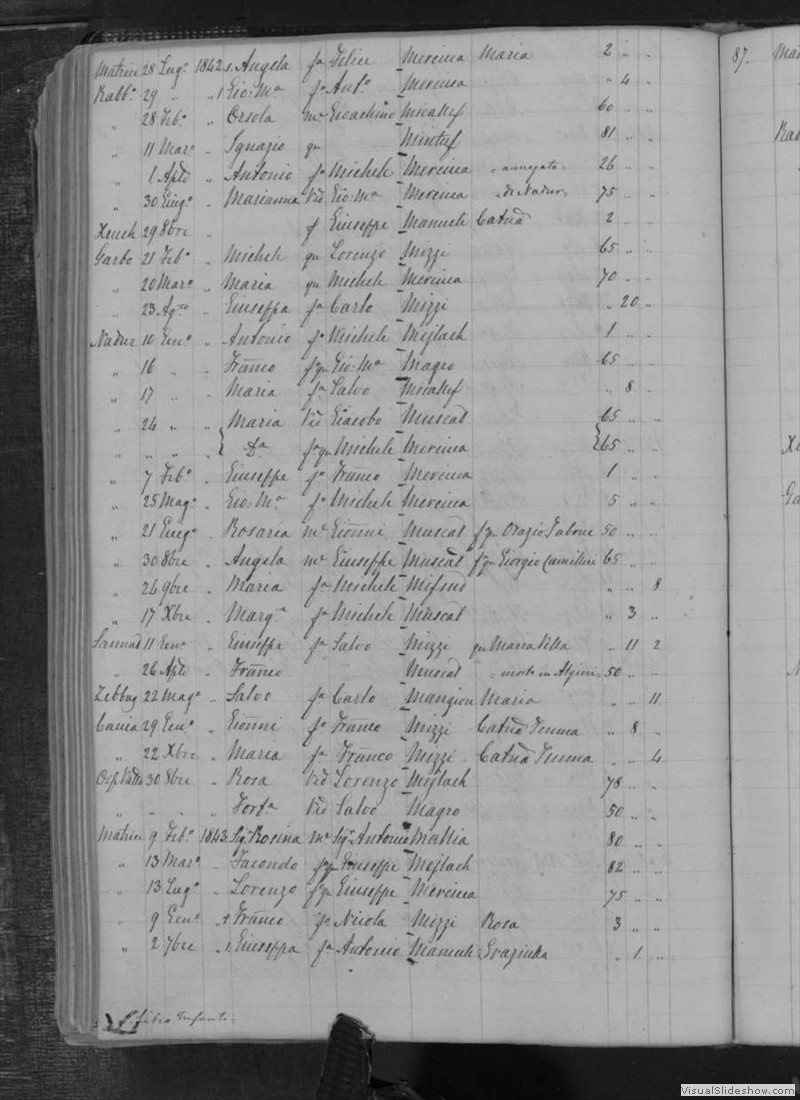 Matrice 28 Lug.o 1842 s. Angela fa Felice Mercieca Maria 2 " "
Rabb.o 29 " " s Gio: Ma fo Ant.o Mercieca " 4 "
" 28 Feb.o " Orsola me Gioachino Micallef 60 " "
" 11 Mar.o " Ignazio qu 81 " "
" 1 Aple " Antonio fo Michele Mercieca annegato 26 " "
" 30 Giug.o " Marianna Vid Gio: Ma Mercieca di Nadur 75 " "
Xeuch 29 8bre " f Giuseppe Manueli Catna 2 " "
Garbo 21 Feb.o " Michele qu Lorenzo Mizzi 65 " "
" 20 Mar.o " Maria qu Michele Mercieca 70 " "
" 23 Ag.to " Giuseppa fa Carlo Mizzi " 20 "
Nadur 10 Gen.o " Antonio fo Michele Mejlach 1 " "
" 16 " " Franco fqu Gio: Ma Magro 65 " "
" 17 " " Maria fa Salvo Micallef " 8 "
" 24 " " Maria Vid Giacobo Muscat 65 " "
" " " " Da fqu Michele Mercieca 65 " "
" 7 Feb.o " Giuseppe fo Franco Mercieca 1 " "
" 25 Mag.o " Gio: Ma fo Michele Mercieca 5 " "
" 21 Giug.o " Rosaria me Gionni Muscat fqu Orazio Tabone 50 " "
" 30 8bre " Angela me Giuseppe Muscat fqu Giorgio Camilleri 65 " "
" 26 9bre " Maria fa Michele Mifsud " " 8
" 17 Xbre " Marg.a fa Michele Muscat " 3 "
Sannat 11 Gen.o " Giuseppe fo Salvo Mizzi qu Maria Vella " 11 2
" 26 Aple " Franco Muscat morto in Algieri 50 " "
Zebbug 22 Mag.o " Salvo fo Carlo Mangion Maria " " 11
Cauia 29 Gen.o " Gionni fo Franco Mizzi Catna Tenma " 8 "
" 22 Xbre " Maria fa Franco Mizzi Catna Tenma " " 4
30 8bre " Rosa Vid Lorenzo Mejlach 78 " "
" " " " Vid Salvo Magro 50 " "
Matrice 9 Feb.o 1843 Sig.a Rosina me Sigr Antonio Mallia 80 " "
" 13 Mar.o " Facondo fqu Giuseppe Mejlach 82 " "
" 13 Lug.o " Lorenzo fqu Giuseppe Mercieca 75 " "
" 9 Gen.o " s Franco fo Nicola Mizzi Rosa 3 " "
" 2 7bre " s Giuseppa fa Antonio Manueli Graziulla " 1 "
s Libro Infanti
87.
VisualSlideshow.com